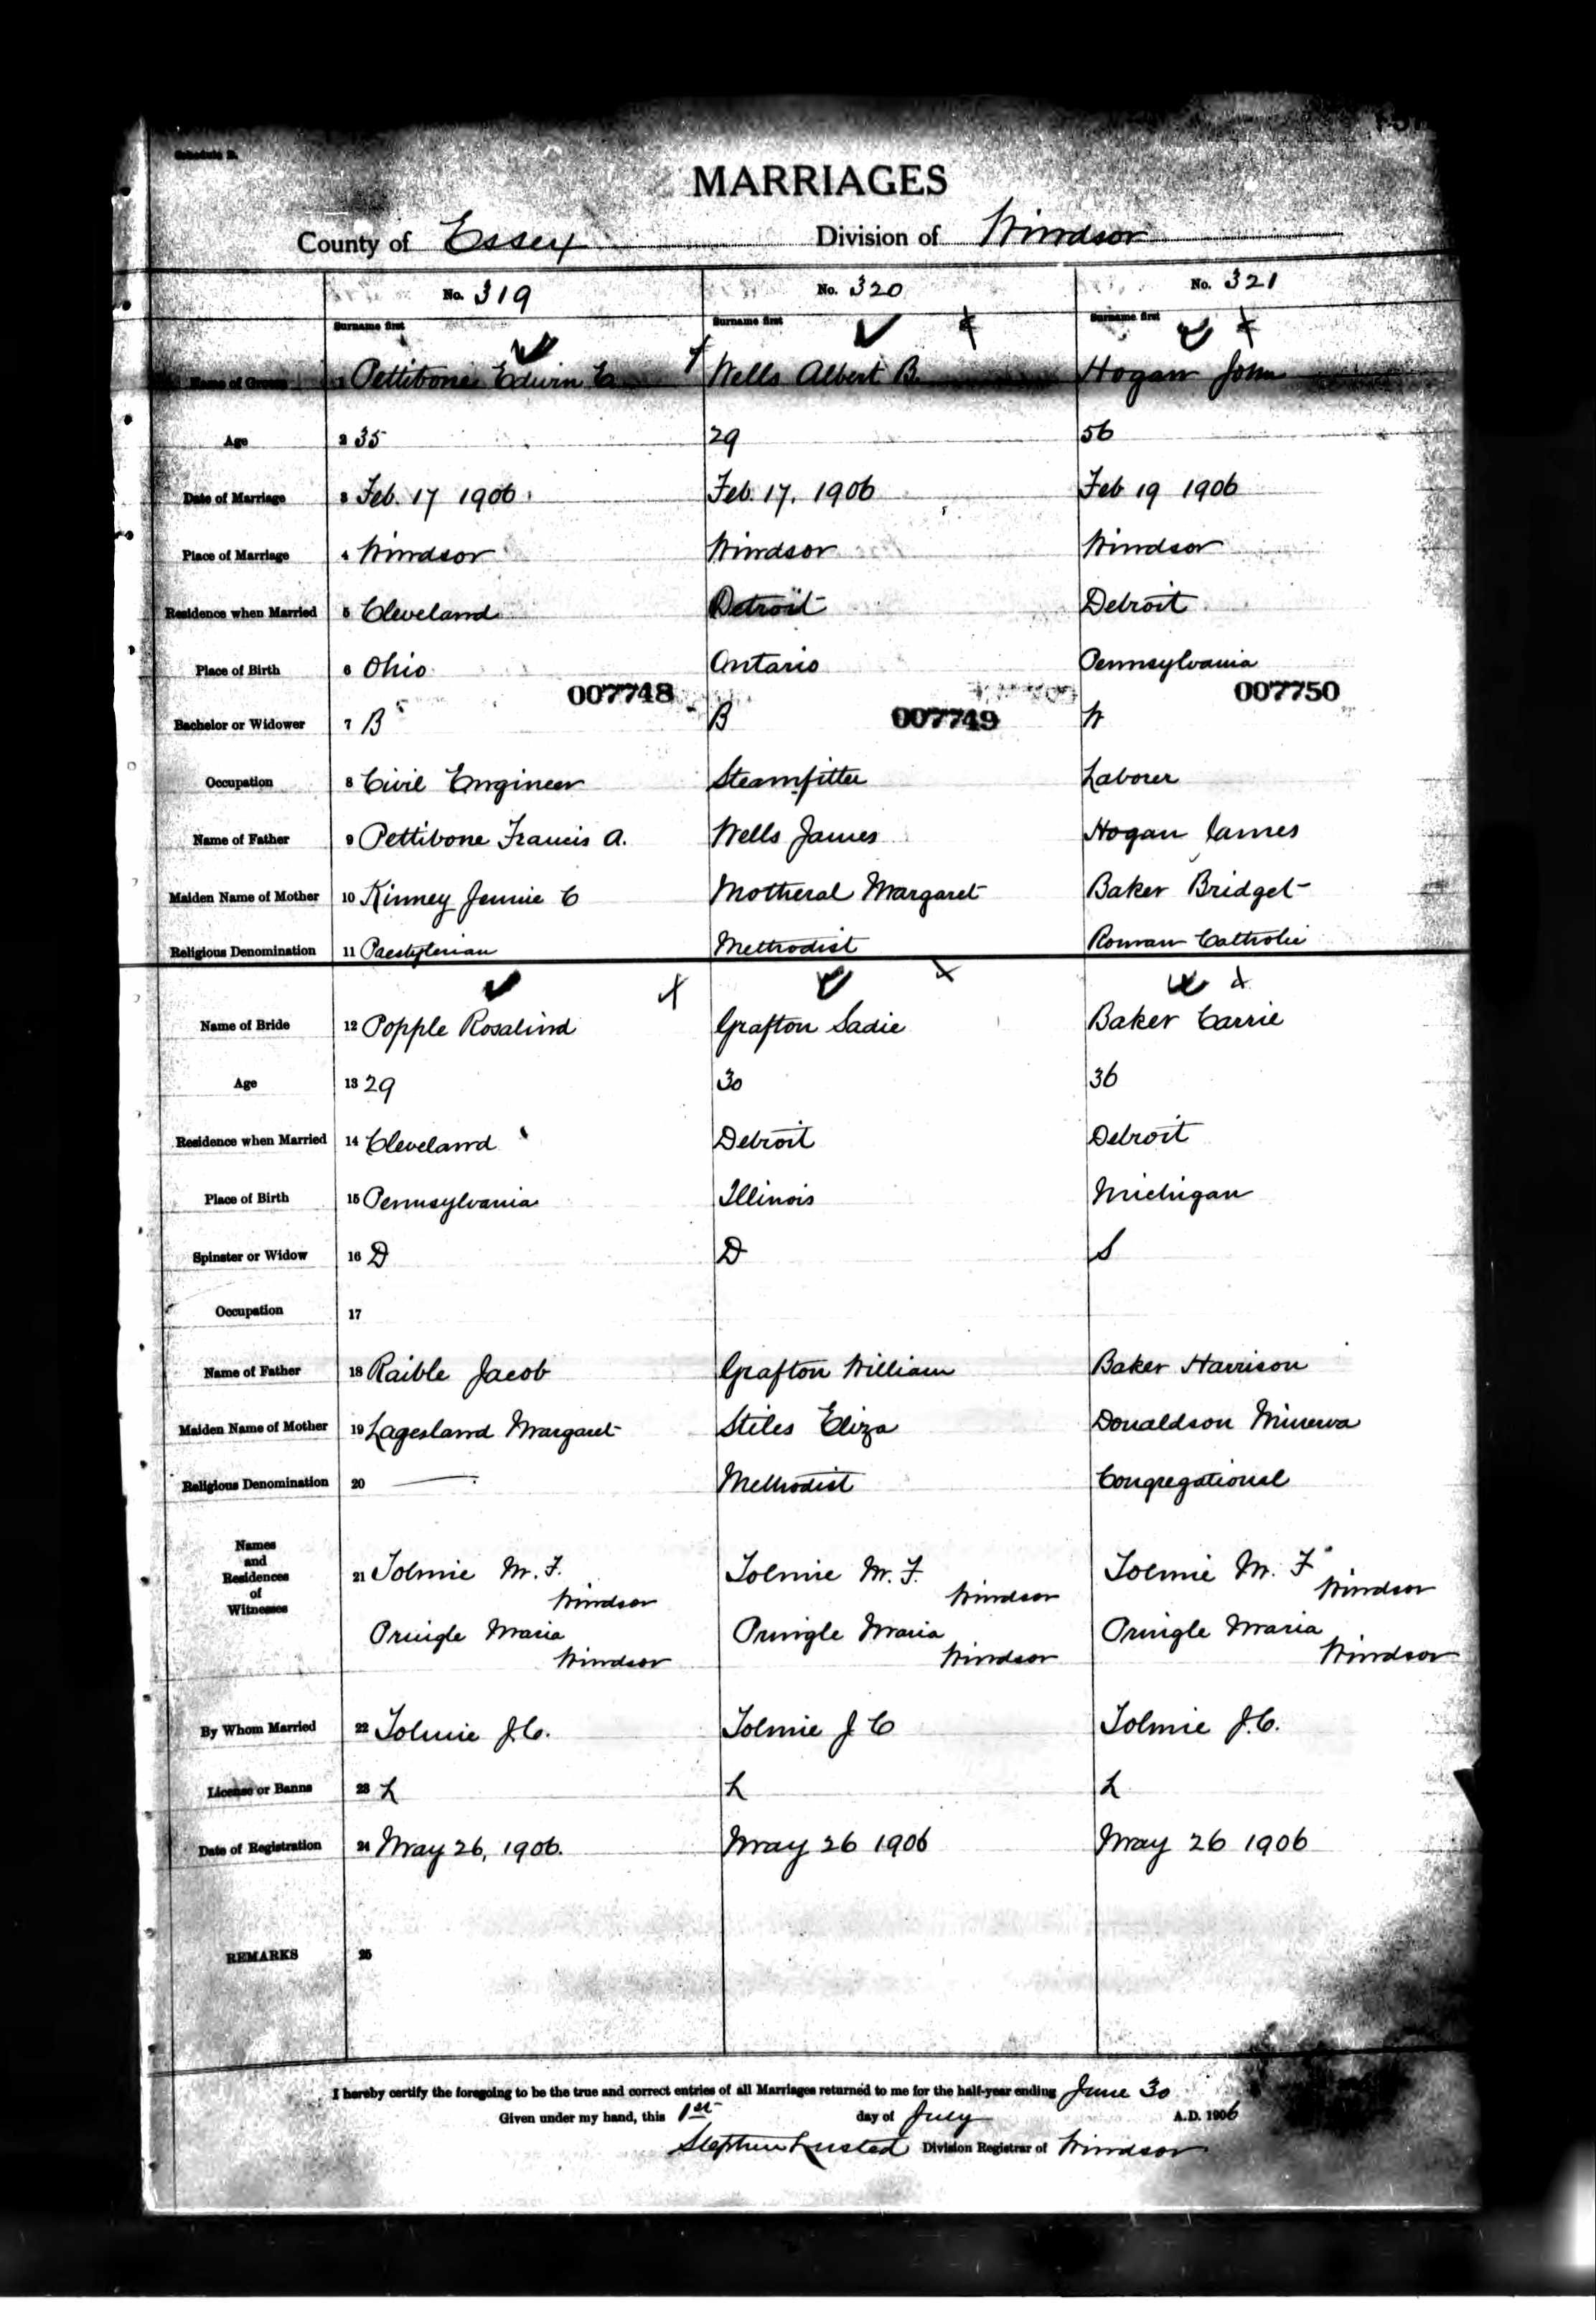 Schedule B.
MARRIAGES
County of Essex Division of Windsor
No. 319 No. 320 No. 321
Surname first Surname first Surname first
Name of Groom 1 Pettibone Edwin C Wells Albert B. Hogan John
Age 2 35 29 56
Date of Marriage 3 Feb. 17 1906 Feb. 17, 1906 Feb 19 1906
Place of Marriage 4 Windsor Windsor Windsor
Residence when Married 5 Cleveland Detroit Detroit
Place of Birth 6 Ohio Ontario Pennsylvania
007748 007749 007750
Bachelor or Widower 7 B B W
Occupation 8 Civil Engineer Steamfitter Laborer
Name of Father 9 Pettibone Francis A. Wells James Hogan James
Maiden Name of Mother 10 Kinney Jennie C Motheral Margaret Baker Bridget
Religious Denomination 11 Presbyterian Methodist Roman Catholic
Name of Bride 12 Popple Rosalind Grafton Sadie Baker Carrie
Age 13 29 30 36
Residence when Married 14 Cleveland Detroit Detroit
Place of Birth 15 Pennsylvania Illinois Michigan
Spinster or Widow 16 D D S
Occupation 17
Name of Father 18 Raible Jacob Grafton William Baker Harrison
Maiden Name of Mother 19 Lagesland Margaret Stiles Eliza Donaldson Minerva
Religious Denomination 20 — Methodist Congregational
Names
and
Residences
of
Witnesses
21 Tolmie M. F. Tolmie M. F. Tolmie M. F
Windsor Windsor Windsor
Pringle Maria Pringle Maria Pringle Maria
Windsor Windsor Windsor
By Whom Married 22 Tolmie J.C. Tolmie J C Tolmie J.C.
License or Banns 23 L L L
Date of Registration 24 May 26, 1906. May 26 1906 May 26 1906
REMARKS 25
I hereby certify the foregoing to be the true and correct entries of all Marriages returned to me for the half-year ending June 30
Given under my hand, this 1st day of July A.D. 1906
Stephen Lusted Division Registrar of Windsor